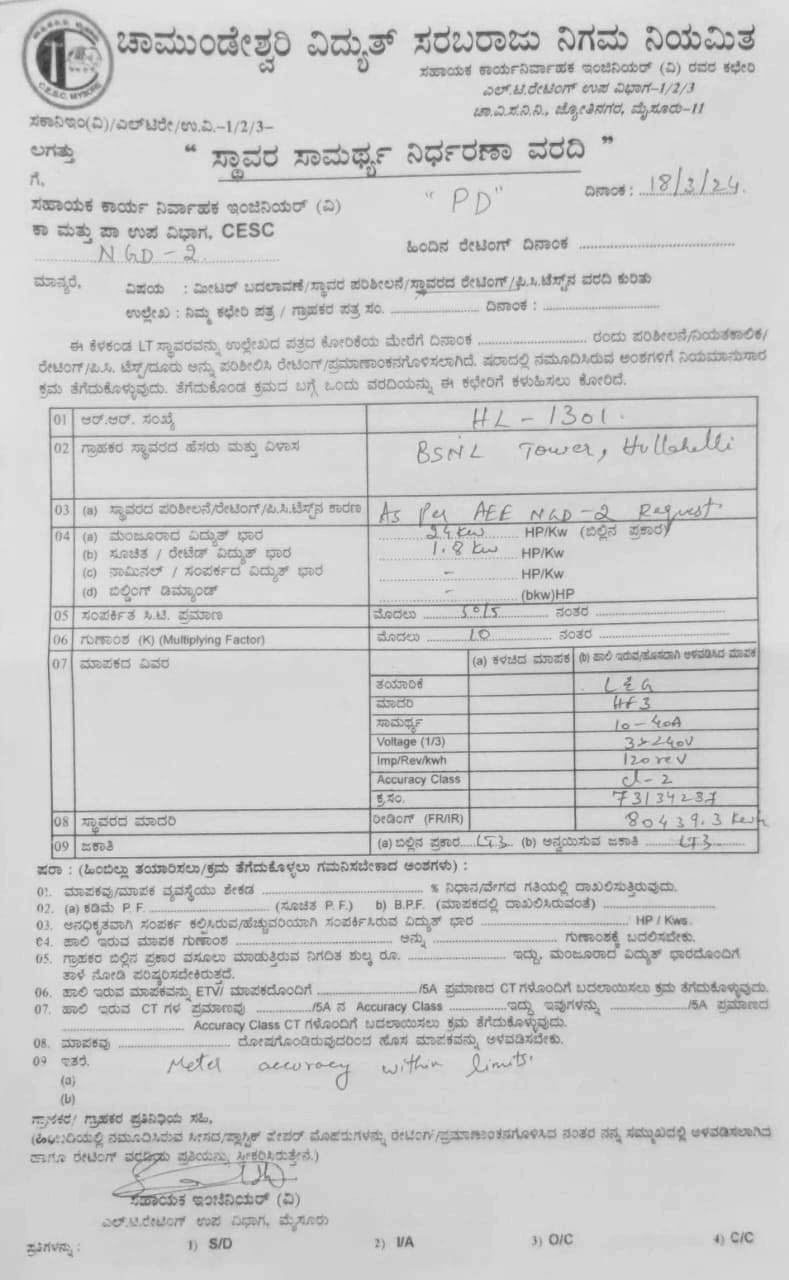 C.E.S.C. MYSORE
ಚಾಮುಂಡೇಶ್ವರಿ ವಿದ್ಯುತ್ ಸರಬರಾಜು ನಿಗಮ ನಿಯಮಿತ
ಸಹಾಯಕ ಕಾರ್ಯನಿರ್ವಾಹಕ ಇಂಜಿನಿಯರ್ (ವಿ) ರವರ ಕಛೇರಿ
ಎಲ್.ಟಿ.ರೇಟಿಂಗ್ ಉಪ ವಿಭಾಗ-1/2/3
ಚಾ.ವಿ.ಸ.ನಿ.ನಿ., ಜ್ಯೋತಿನಗರ, ಮೈಸೂರು-11
ಸಕಾನಿಇಂ(ವಿ)/ಎಲ್‌ಟಿರೇ/ಉ.ವಿ.-1/2/3-
ಲಗತ್ತು
“ ಸ್ಥಾವರ ಸಾಮರ್ಥ್ಯ ನಿರ್ಧರಣಾ ವರದಿ ”
ಗೆ,
"PD"
ದಿನಾಂಕ : 18/3/24
ಸಹಾಯಕ ಕಾರ್ಯ ನಿರ್ವಾಹಕ ಇಂಜಿನಿಯರ್ (ವಿ)
ಕಾ ಮತ್ತು ಪಾ ಉಪ ವಿಭಾಗ, CESC
ಹಿಂದಿನ ರೇಟಿಂಗ್ ದಿನಾಂಕ
NGD-2
ಮಾನ್ಯರೆ,
ವಿಷಯ : ಮೀಟರ್ ಬದಲಾವಣೆ/ಸ್ಥಾವರ ಪರಿಶೀಲನೆ/ಸ್ಥಾವರದ ರೇಟಿಂಗ್/ಪಿ.ಸಿ.ಟೆಸ್ಟ್‌ನ ವರದಿ ಕುರಿತು
ಉಲ್ಲೇಖ : ನಿಮ್ಮ ಕಛೇರಿ ಪತ್ರ / ಗ್ರಾಹಕರ ಪತ್ರ ಸಂ. ದಿನಾಂಕ :
ಈ ಕೆಳಕಂಡ LT ಸ್ಥಾವರವನ್ನು ಉಲ್ಲೇಖದ ಪತ್ರದ ಕೋರಿಕೆಯ ಮೇರೆಗೆ ದಿನಾಂಕ ರಂದು ಪರಿಶೀಲನೆ/ನಿಯತಕಾಲಿಕ/
ರೇಟಿಂಗ್/ಪಿ.ಸಿ. ಟೆಸ್ಟ್/ದೂರು ಅನ್ನು ಪರಿಶೀಲಿಸಿ ರೇಟಿಂಗ್/ಪ್ರಮಾಣಾಂಕನಗೊಳಿಸಲಾಗಿದೆ. ಷರಾದಲ್ಲಿ ನಮೂದಿಸಿರುವ ಅಂಶಗಳಿಗೆ ನಿಯಮಾನುಸಾರ
ಕ್ರಮ ತೆಗೆದುಕೊಳ್ಳುವುದು. ತೆಗೆದುಕೊಂಡ ಕ್ರಮದ ಬಗ್ಗೆ ಒಂದು ವರದಿಯನ್ನು ಈ ಕಛೇರಿಗೆ ಕಳುಹಿಸಲು ಕೋರಿದೆ.
01 ಆರ್.ಆರ್. ಸಂಖ್ಯೆ HL-1301.
02 ಗ್ರಾಹಕರ ಸ್ಥಾವರದ ಹೆಸರು ಮತ್ತು ವಿಳಾಸ BSNL Tower, Hullahelli
03 (a) ಸ್ಥಾವರದ ಪರಿಶೀಲನೆ/ರೇಟಿಂಗ್/ಪಿ.ಸಿ.ಟೆಸ್ಟ್‌ನ ಕಾರಣ As Per AEE NGD-2 Request.
04 (a) ಮಂಜೂರಾದ ವಿದ್ಯುತ್ ಭಾರ 24 Kw HP/Kw (ಬಿಲ್ಲಿನ ಪ್ರಕಾರ)
(b) ಸೂಚಿತ / ರೇಟೆಡ್ ವಿದ್ಯುತ್ ಭಾರ 1.8 Kw HP/Kw
(c) ನಾಮಿನಲ್ / ಸಂಪರ್ಕದ ವಿದ್ಯುತ್ ಭಾರ - HP/Kw
(d) ಬಿಲ್ಡಿಂಗ್ ಡಿಮ್ಯಾಂಡ್ - (bkw)HP
05 ಸಂಪರ್ಕಿತ ಸಿ.ಟಿ. ಪ್ರಮಾಣ ಮೊದಲು 50/5 ನಂತರ
06 ಗುಣಾಂಶ (K) (Multiplying Factor) ಮೊದಲು 10 ನಂತರ
07 ಮಾಪಕದ ವಿವರ (a) ಕಳಚಿದ ಮಾಪಕ (b) ಹಾಲಿ ಇರುವ/ಹೊಸದಾಗಿ ಅಳವಡಿಸಿದ ಮಾಪಕ
ತಯಾರಿಕೆ L&G
ಮಾದರಿ HF3
ಸಾಮರ್ಥ್ಯ 10-40A
Voltage (1/3) 3x240V
Imp/Rev/kwh 120 rev
Accuracy Class cl-2
ಕ್ರ.ಸಂ. 73134287
08 ಸ್ಥಾವರದ ಮಾದರಿ ರೀಡಿಂಗ್ (FR/IR) 80439.3 Kwh
09 ಜಕಾತಿ (a) ಬಿಲ್ಲಿನ ಪ್ರಕಾರ LT3 (b) ಅನ್ವಯಿಸುವ ಜಕಾತಿ LT3
ಷರಾ : (ಹಿಂಬಿಲ್ಲು ತಯಾರಿಸಲು/ಕ್ರಮ ತೆಗೆದುಕೊಳ್ಳಲು ಗಮನಿಸಬೇಕಾದ ಅಂಶಗಳು) :
01. ಮಾಪಕವು/ಮಾಪಕ ವ್ಯವಸ್ಥೆಯು ಶೇಕಡ % ನಿಧಾನ/ವೇಗದ ಗತಿಯಲ್ಲಿ ದಾಖಲಿಸುತ್ತಿರುವುದು.
02. (a) ಕಡಿಮೆ P. F. (ಸೂಚಿತ P. F.) b) B.P.F. (ಮಾಪಕದಲ್ಲಿ ದಾಖಲಿಸಿರುವಂತೆ)
03. ಅನಧಿಕೃತವಾಗಿ ಸಂಪರ್ಕ ಕಲ್ಪಿಸಿರುವ/ಹೆಚ್ಚುವರಿಯಾಗಿ ಸಂಪರ್ಕಿಸಿರುವ ವಿದ್ಯುತ್ ಭಾರ HP / Kws.
04. ಹಾಲಿ ಇರುವ ಮಾಪಕ ಗುಣಾಂಶ ಅನ್ನು ಗುಣಾಂಶಕ್ಕೆ ಬದಲಿಸಬೇಕು.
05. ಗ್ರಾಹಕರ ಬಿಲ್ಲಿನ ಪ್ರಕಾರ ವಸೂಲು ಮಾಡುತ್ತಿರುವ ನಿಗದಿತ ಶುಲ್ಕ ರೂ. ಇದ್ದು, ಮಂಜೂರಾದ ವಿದ್ಯುತ್ ಭಾರದೊಂದಿಗೆ
ತಾಳೆ ನೋಡಿ ಪರಿಷ್ಕರಿಸಬೇಕಿರುತ್ತದೆ.
06. ಹಾಲಿ ಇರುವ ಮಾಪಕವನ್ನು ETV/ ಮಾಪಕದೊಂದಿಗೆ /5A ಪ್ರಮಾಣದ CT ಗಳೊಂದಿಗೆ ಬದಲಾಯಿಸಲು ಕ್ರಮ ತೆಗೆದುಕೊಳ್ಳುವುದು.
07. ಹಾಲಿ ಇರುವ CT ಗಳ ಪ್ರಮಾಣವು /5A ನ Accuracy Class ಇದ್ದು ಇವುಗಳನ್ನು /5A ಪ್ರಮಾಣದ
Accuracy Class CT ಗಳೊಂದಿಗೆ ಬದಲಾಯಿಸಲು ಕ್ರಮ ತೆಗೆದುಕೊಳ್ಳುವುದು.
08. ಮಾಪಕವು ದೋಷಗೊಂಡಿರುವುದರಿಂದ ಹೊಸ ಮಾಪಕವನ್ನು ಅಳವಡಿಸಬೇಕು.
09 ಇತರೆ. Meter accuracy within limits.
(a)
(b)
ಗ್ರಾಹಕರ/ ಗ್ರಾಹಕರ ಪ್ರತಿನಿಧಿಯ ಸಹಿ,
(ಹಿಂಬದಿಯಲ್ಲಿ ನಮೂದಿಸಿರುವ ಸೀಸದ/ಪ್ಲಾಸ್ಟಿಕ್ ಪೇಪರ್ ಮೊಹರುಗಳನ್ನು ರೇಟಿಂಗ್/ಪ್ರಮಾಣಾಂಕನಗೊಳಿಸಿದ ನಂತರ ನನ್ನ ಸಮ್ಮುಖದಲ್ಲಿ ಅಳವಡಿಸಲಾಗಿದೆ
ಹಾಗೂ ರೇಟಿಂಗ್ ವರದಿಯ ಪ್ರತಿಯನ್ನು ಸ್ವೀಕರಿಸಿರುತ್ತೇನೆ.)
ಸಹಾಯಕ ಇಂಜಿನಿಯರ್ (ವಿ)
ಎಲ್.ಟಿ.ರೇಟಿಂಗ್ ಉಪ ವಿಭಾಗ, ಮೈಸೂರು
ಪ್ರತಿಗಳನ್ನು : 1) S/D 2) I/A 3) O/C 4) C/C